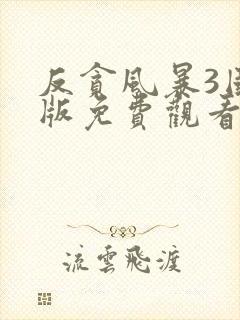 反貪風暴3
版免費觀看
流雲飛渡